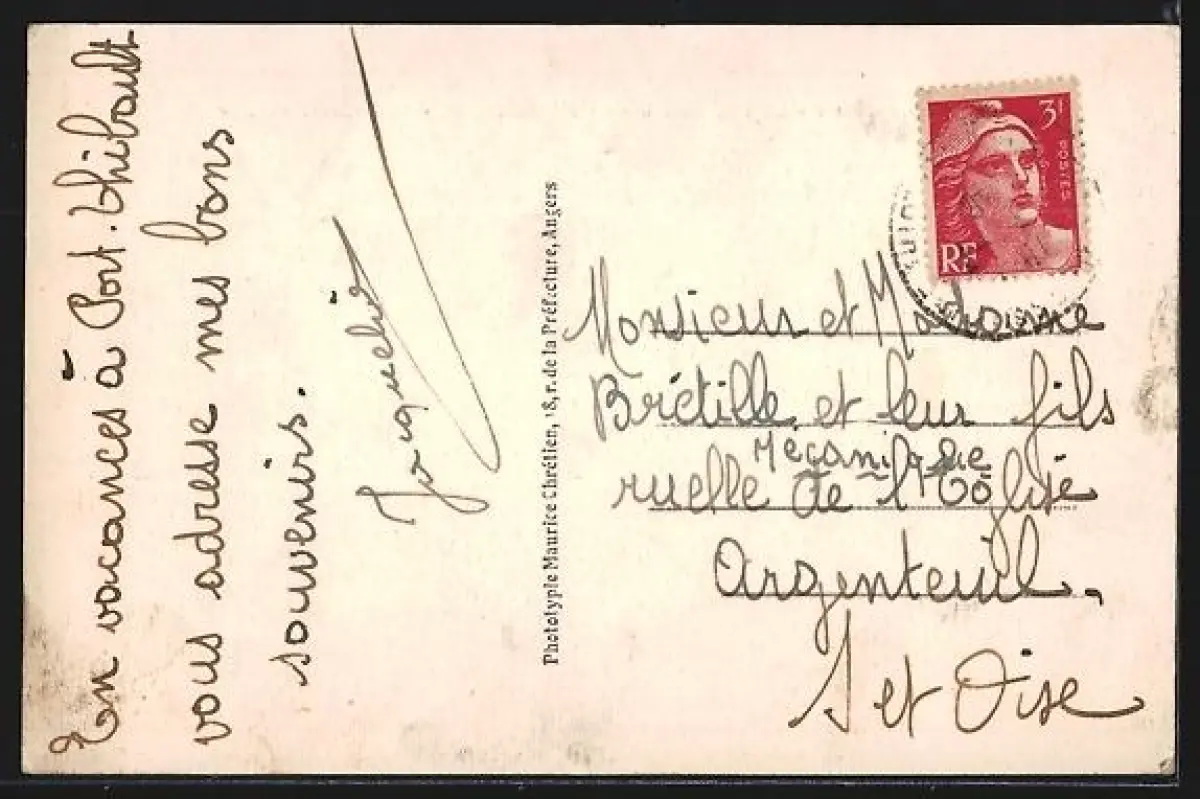 En vacances à Port-Thibault
vous adresse mes bons
souvenirs.
Jacqueline
Phototypie Maurice Chrétien, 18, r. de la Préfecture, Angers
3f
POSTES
RF
Monsieur et Madame
Brétille et leur fils
Mécanique
ruelle de l'Eglise
Argenteuil.
S et Oise